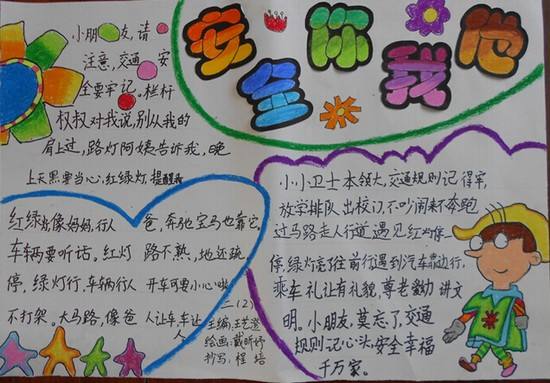 安全你我他
小朋友,请
注意,交通安
全要牢记。栏杆
叔叔对我说,别从我的
肩上过,路灯阿姨告诉我,晚
上天黑要当心,红绿灯,提醒我
红绿灯像妈妈,行人
车辆要听话。红灯
停,绿灯行,车辆行人
不打架。大马路,像爸
爸,奔驰宝马也靠它。
路不熟,地还疏,
开车可要小心啦
人让车,车让
人
二(2)
主编:王艺澄
绘画:戴昕妤
抄写:程培
小小卫士本领大,交通规则记得牢,
放学排队出校门,不吵闹来不奔跑
过马路走人行道遇见红灯停
停,绿灯亮了往前行遇到汽车靠边行,
乘车礼让有礼貌,尊老爱幼讲文
明。小朋友,莫忘了,交通
规则记心头,安全幸福
千万家。